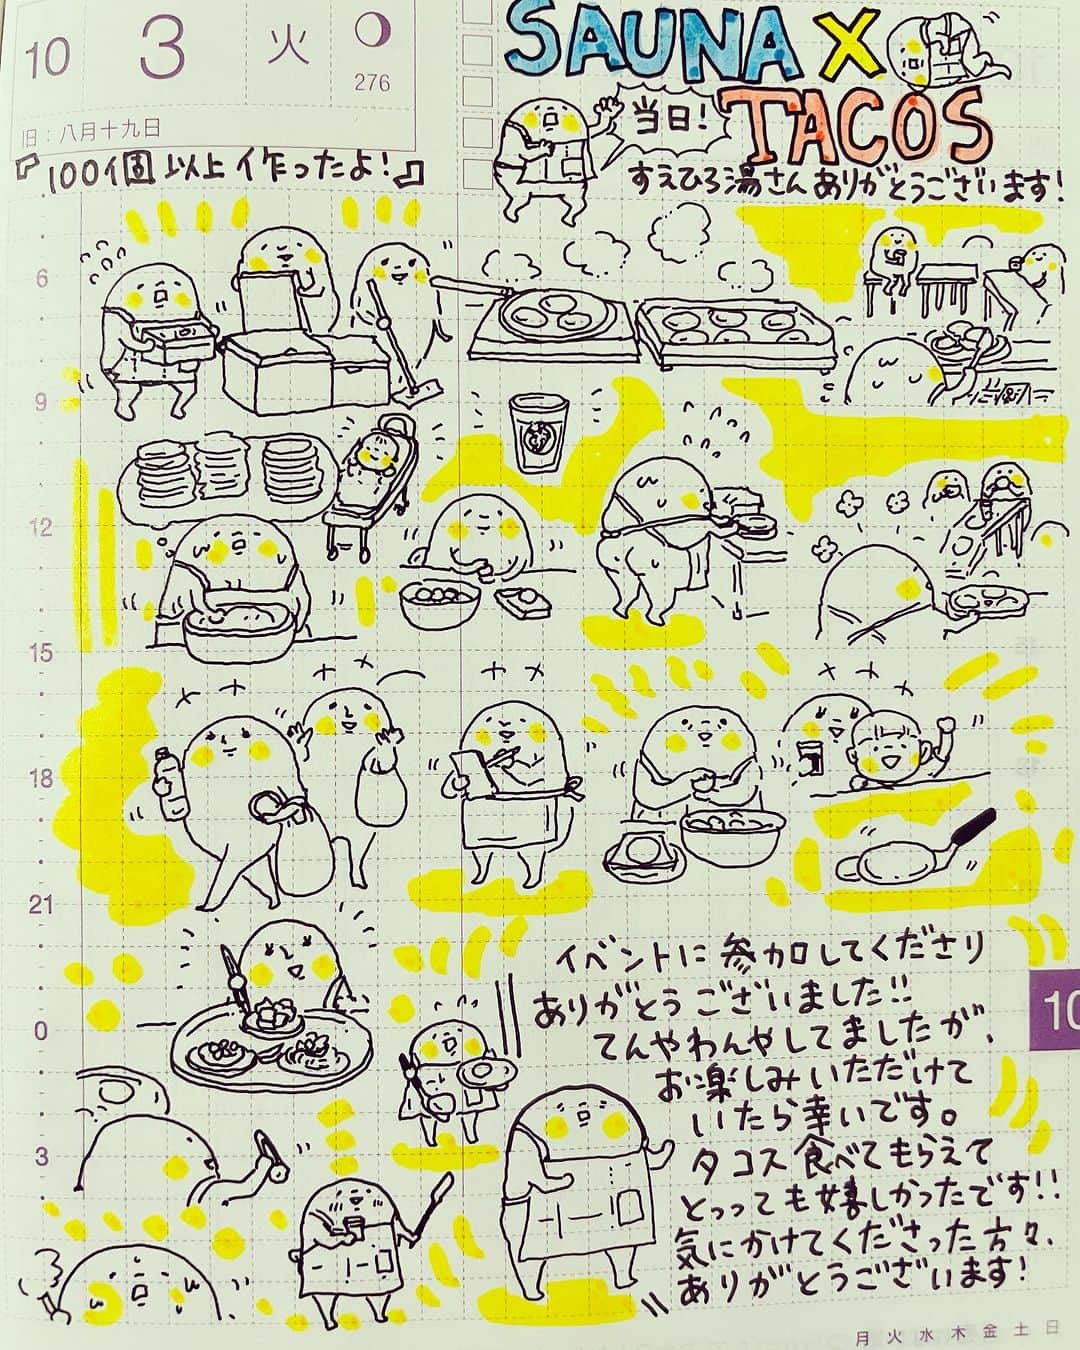 10 3 火
276
旧：八月十九日
SAUNA X
TACOS
当日!
『100個以上作ったよ!』
すえひろ湯さんありがとうございます!
6
9
12
15
18
21
0
3
イベントに参加してくださり
ありがとうございました!!
てんやわんやしてましたが、
お楽しみいただけて
いたら幸いです。
タコス食べてもらえて
とっっても嬉しかったです!!
気にかけてくださった方々、
ありがとうございます!
10
月 火 水 木 金 土 日